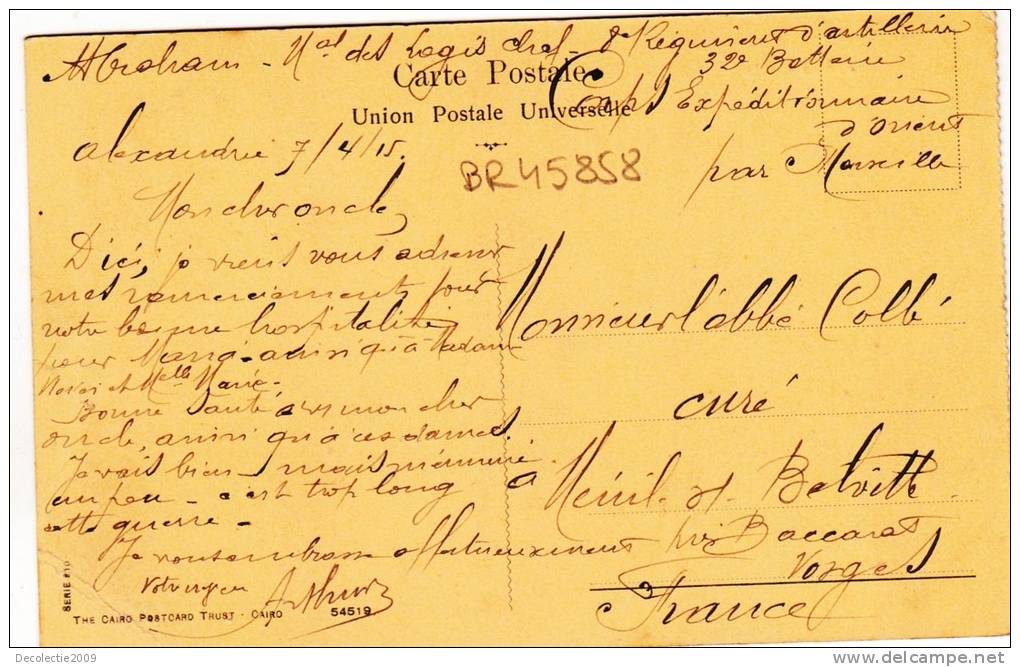 Abraham - Mal des Logis chef - 8e Régiment d'artillerie
32e Batterie
Carte Postale
Corps Expéditionnaire
Union Postale Universelle
d'Orient
par Marseille
Alexandrie 7/4/15.
BR45858
Mon cher oncle,
D'ici, je viens vous adresser
mes remerciements pour
votre bonne hospitalité
pour Maria - ainsi qu'à Madame
et Melle Marie -
Bonne Santé mon cher
oncle, ainsi qu'à ces dames.
Je vais bien - mais m'ennuie
un peu - c'est trop long
cette guerre -
Je vous embrasse affectueusement
Votre neveu Arthur
Monsieur l'abbé Collé
curé
à Ménil et Belvitte
près Baccarat
Vosges
France
SERIE 210
THE CAIRO POSTCARD TRUST - CAIRO 54519
Decolectie2009
www.delcampe.net